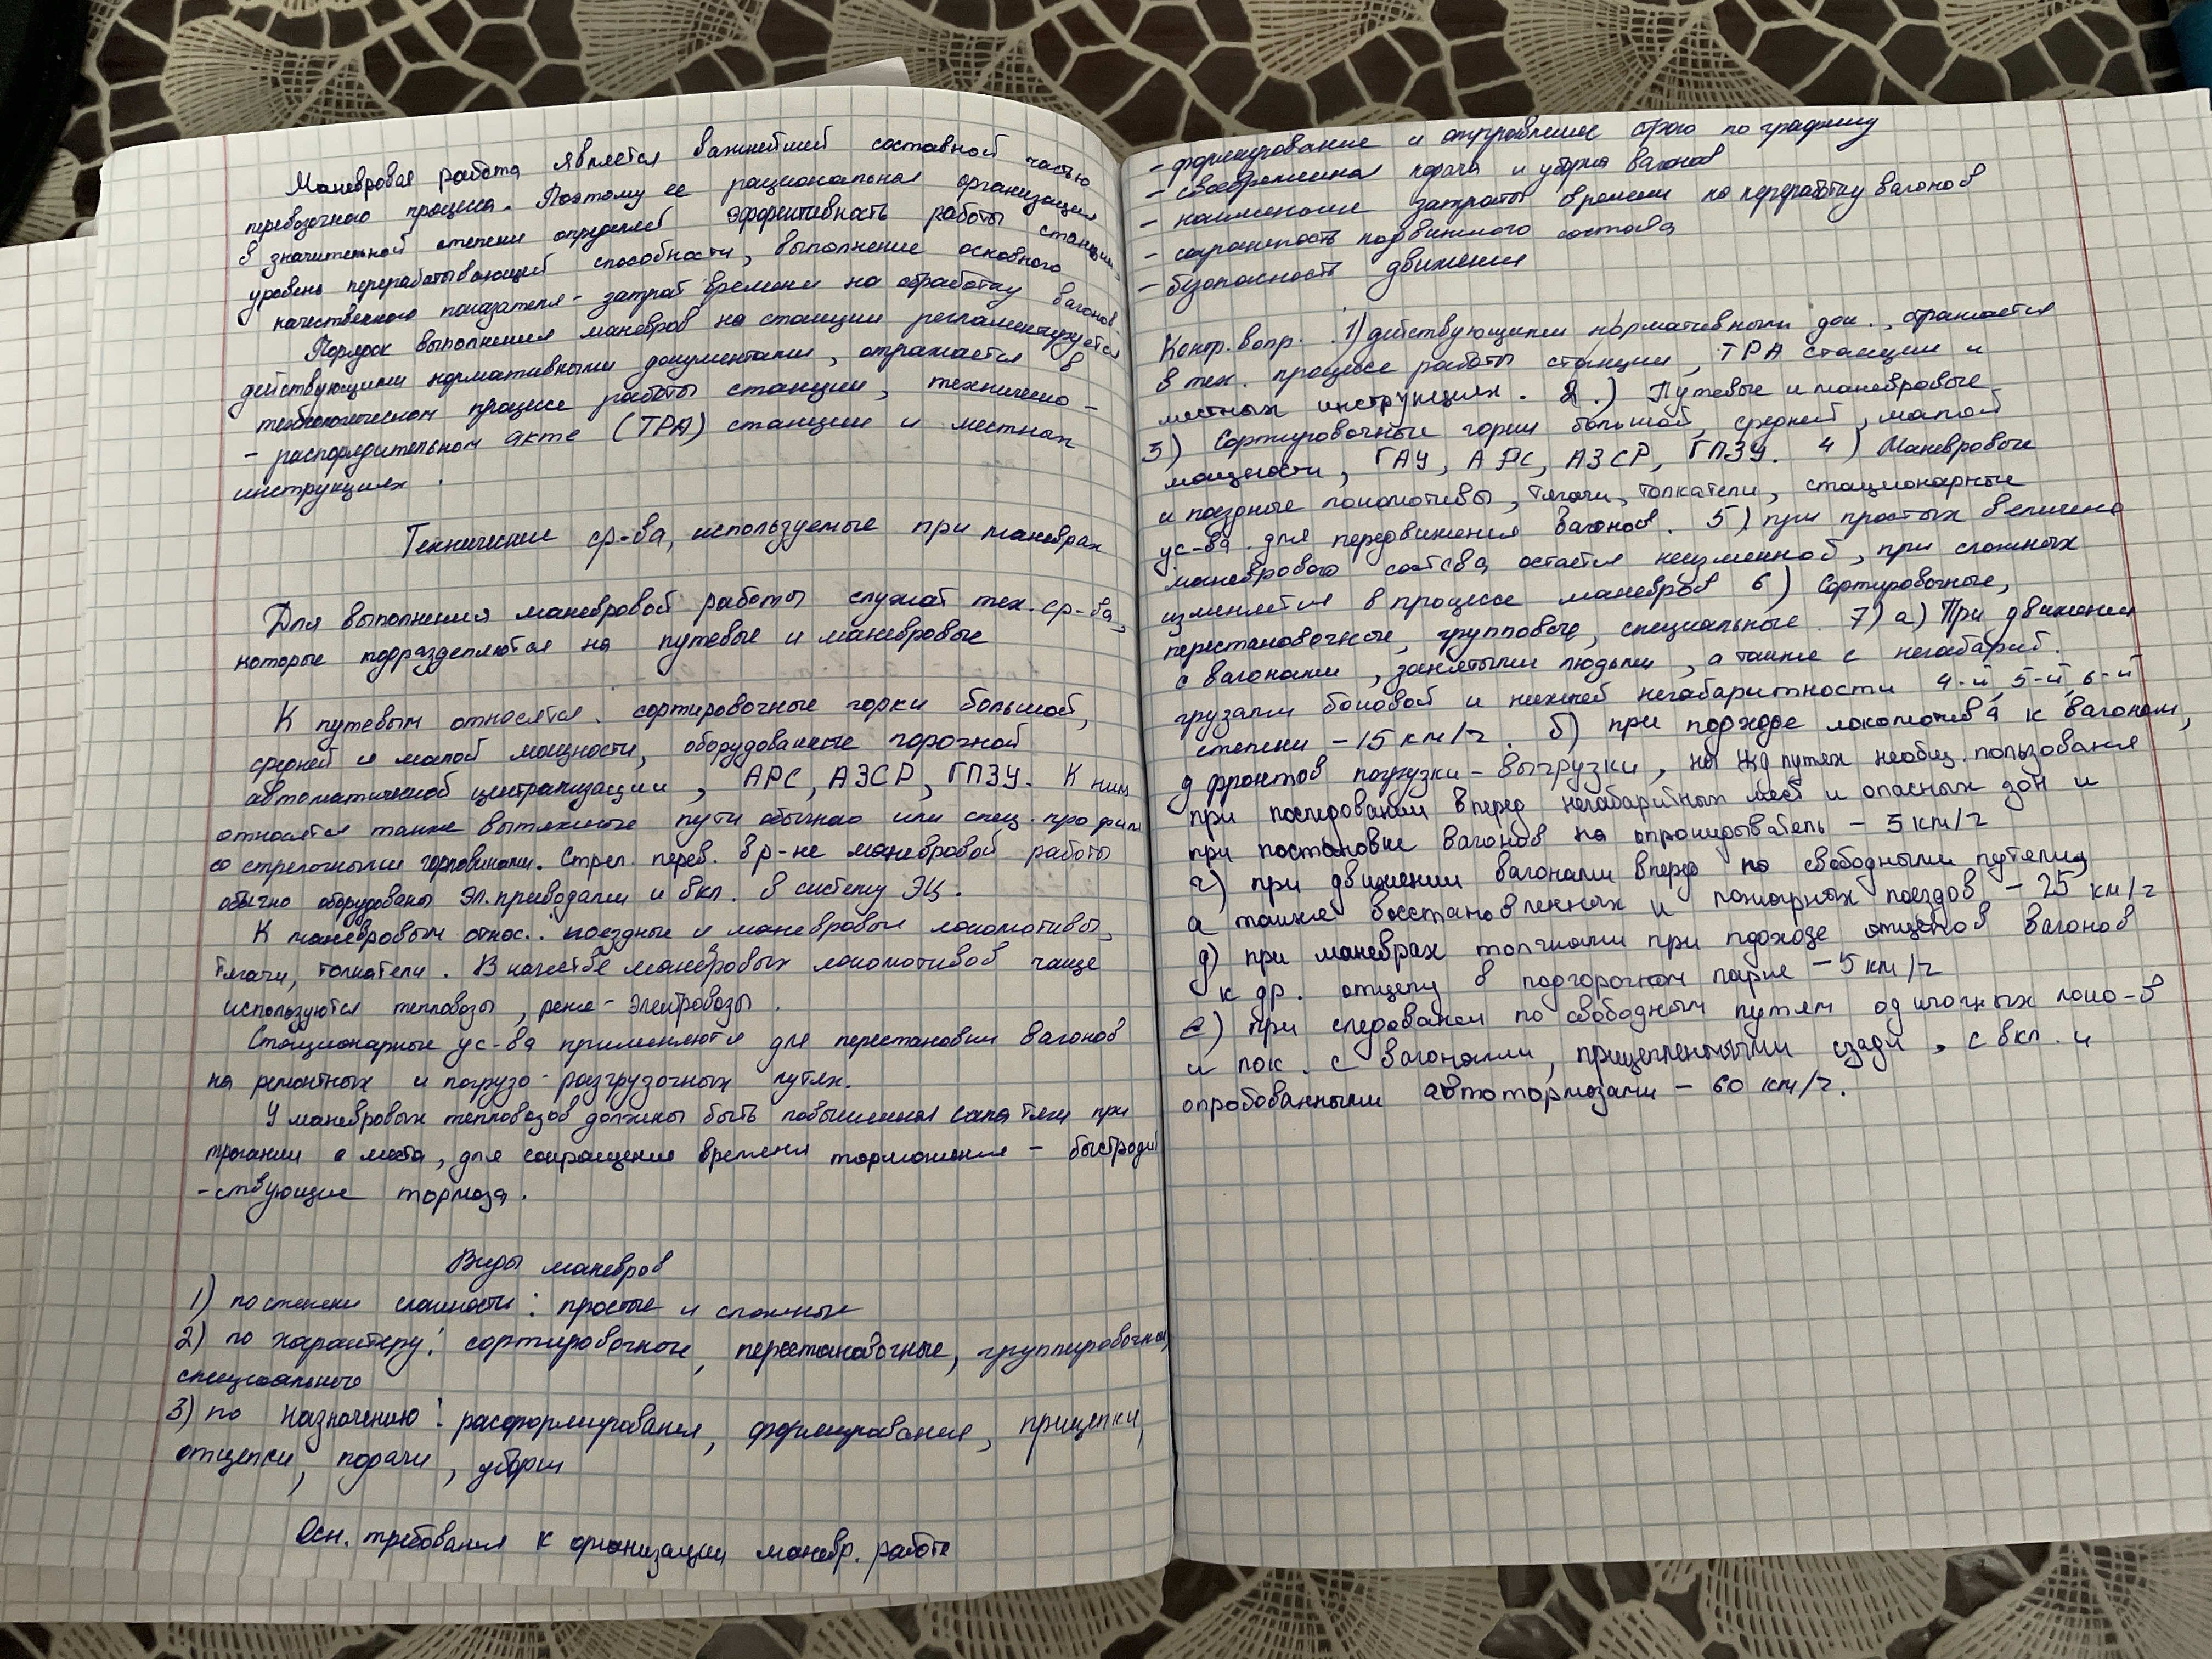 Маневровая работа является важнейшей составной частью
перевозочного процесса. Поэтому ее рациональная организация
в значительной степени определяет эффективность работы станции -
уровень перерабатывающей способности, выполнение основного
качественного показателя - затрат времени на обработку вагонов.
Порядок выполнения маневров на станции регламентируется
действующими нормативными документами, отражается в
технологическом процессе работы станции, техническо -
- распорядительном акте (ТРА) станции и местных
инструкциях.
Технические ср-ва, используемые при маневрах
Для выполнения маневровой работы служат тех. ср-ва,
которые подразделяются на путевые и маневровые
К путевым относятся: сортировочные горки большой,
средней и малой мощности, оборудованные горочной
автоматической централизации, АРС, АЗСР, ГПЗУ. К ним
относятся также вытяжные пути обычно или спец. профиля
со стрелочными горловинами. Стрел. перев. в р-не маневровой работы
обычно оборудованы эл. приводами и вкл. в систему ЭЦ.
К маневровым относ.: поездные и маневровые локомотивы,
тягачи, толкатели. В качестве маневровых локомотивов чаще
используются тепловозы, реже - электровозы.
Стационарные ус-ва применяются для перестановки вагонов
на ремонтных и погрузо-разгрузочных путях.
У маневровых тепловозов должны быть повышенная сила тяги при
трогании с места, для сокращения времени торможения - быстродей
-ствующие тормоза.
Виды маневров
1) по степени сложности: простые и сложные
2) по характеру: сортировочные, перестановочные, группировочные,
специальные
3) по назначению: расформирования, формирования, прицепки,
отцепки, подачи, уборки
Осн. требования к организации маневр. работе
- формирование и отправление строго по графику
- своевременная подача и уборка вагонов
- наименьшие затраты времени на переработку вагонов
- сохранность подвижного состава
- безопасность движения
Контр. вопр. : 1) действующими нормативными док., отражается
в тех. процессе работы станции, ТРА станции и
местных инструкциях. 2.) Путевые и маневровые
3) Сортировочные горки большой, средней, малой
мощности, ГАУ, АРС, АЗСР, ГПЗУ. 4) Маневровые
и поездные локомотивы, тягачи, толкатели, стационарные
ус-ва для передвижения вагонов. 5) при простых величина
маневрового состава остается неизменной, при сложных
изменяется в процессе маневров 6) Сортировочные,
перестановочные, групповые, специальные. 7) а) При движении
с вагонами, занятыми людьми, а также с негабарит.
грузами боковой и нижней негабаритности 4-й, 5-й, 6-й
степени - 15 км/ч. б) при подходе локомотива к вагонам,
д фронтов погрузки-выгрузки, на жд путях необщ. пользования
при последовании вперед негабаритных мест и опасных зон и
при постановке вагонов на опрокидыватель - 5 км/ч
г) при движении вагонами вперед по свободными путями,
а также восстановленных и пожарных поездов - 25 км/ч
д) при маневрах толчками при подходе отцепов вагонов
к др. отцепу в подгорочном парке - 5 км/ч
е) при следовании по свободным путям одиночных локо-в
и лок. с вагонами, прицепленными сзади, с вкл. и
опробованными автотормозами - 60 км/ч.